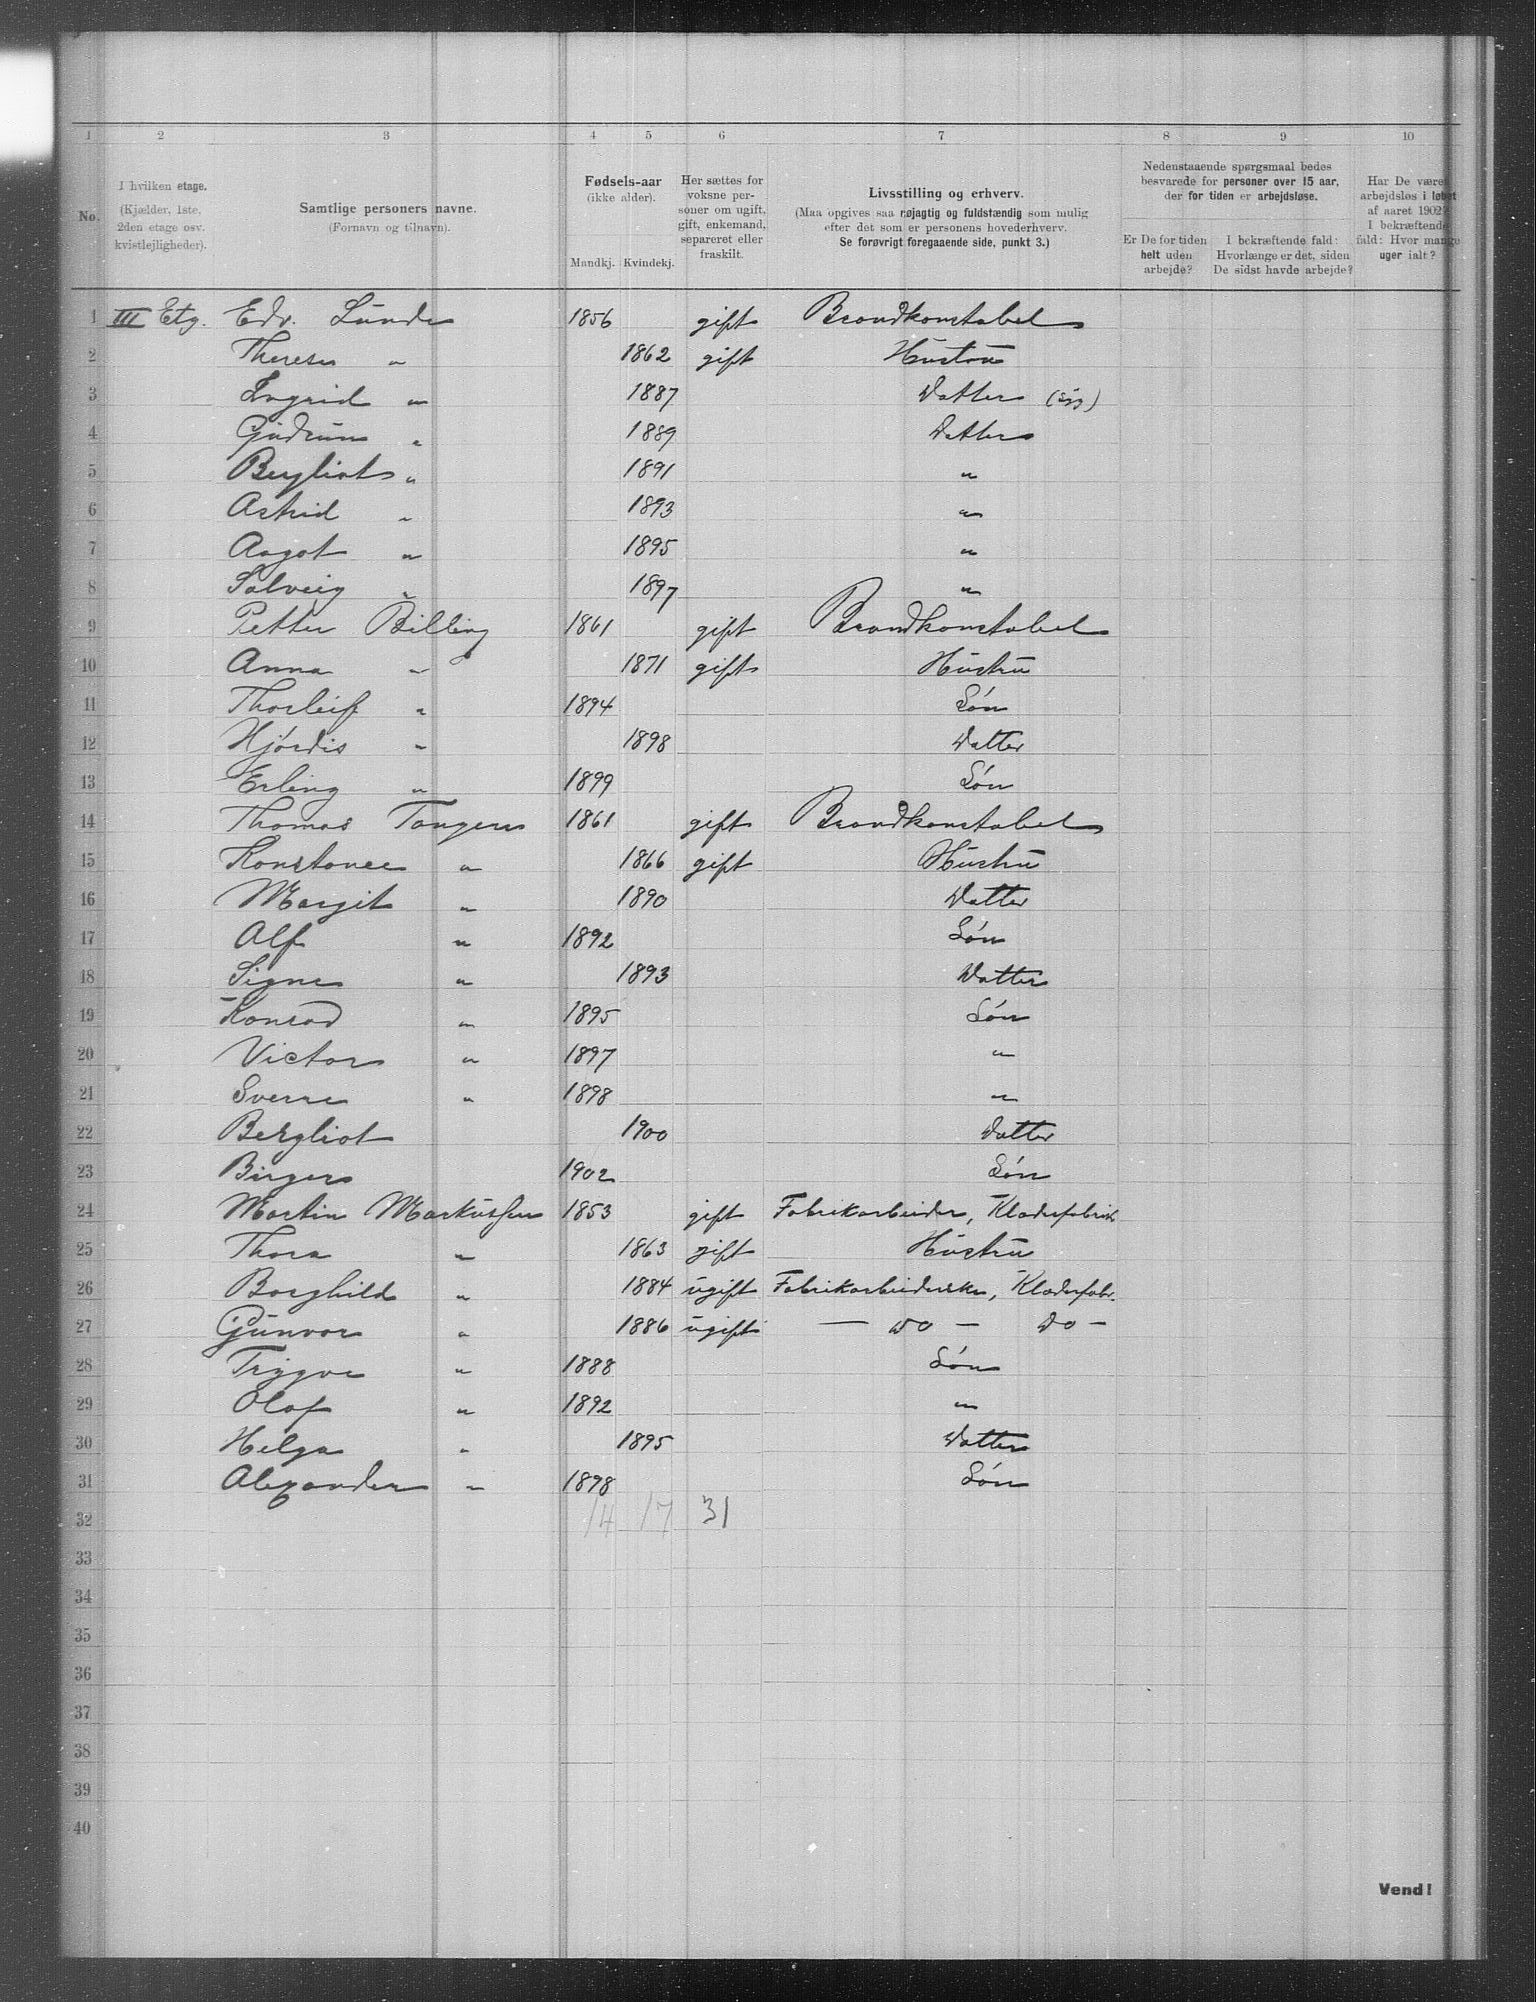 1 2 3 4 5 6 7 8 9 10
No.
I hvilken etage.
(Kjælder, 1ste,
2den etage osv.
kvistlejligheder).
Samtlige personers navne.
(Fornavn og tilnavn).
Fødsels-aar
(ikke alder).
Mandkj. Kvindekj.
Her sættes for
voksne per-
soner om ugift,
gift, enkemand,
separeret eller
fraskilt.
Livsstilling og erhverv.
(Maa opgives saa nøjagtig og fuldstændig som mulig
efter det som er personens hovederhverv.
Se forøvrigt foregaaende side, punkt 3.)
Nedenstaaende spørgsmaal bedes
besvarede for personer over 15 aar,
der for tiden er arbejdsløse.
Er De for tiden
helt uden
arbejde?
I bekræftende fald:
Hvorlænge er det, siden
De sidst havde arbejde?
Har De været
arbejdsløs i løbet
af aaret 1902?
I bekræftende
fald: Hvor mange
uger ialt?
1 III Etg. Edv. Lunde 1856 gift Brandkonstabel
2 Therese " 1862 gift Hustru
3 Ingrid " 1887 Datter
4 Gudrun " 1889 Datter
5 Bergliot " 1891 "
6 Astrid " 1893 "
7 Aagot " 1895 "
8 Solveig " 1897 "
9 Petter Billing 1861 gift Brandkonstabel
10 Anna " 1871 gift Hustru
11 Thorleif " 1894 Søn
12 Hjørdis " 1898 Datter
13 Erling " 1899 Søn
14 Thomas Tangen 1861 gift Brandkonstabel
15 Konstance " 1866 gift Hustru
16 Margit " 1890 Datter
17 Alf " 1892 Søn
18 Signe " 1893 Datter
19 Konrad " 1895 Søn
20 Victor " 1897 "
21 Sverre " 1898 "
22 Bergliot 1900 Datter
23 Birger 1902 Søn
24 Martin Markussen 1853 gift Fabrikarbeider, Klædefabrik
25 Thora " 1863 gift Hustru
26 Borghild " 1884 ugift Fabrikarbeiderske, Klædefabr.
27 Gunvor " 1886 ugift — Do — Do —
28 Trygve " 1888 Søn
29 Olaf " 1892 "
30 Helga " 1895 Datter
31 Alexander " 1898 Søn
32 14 17 31
33
34
35
36
37
38
39
40
Vend!